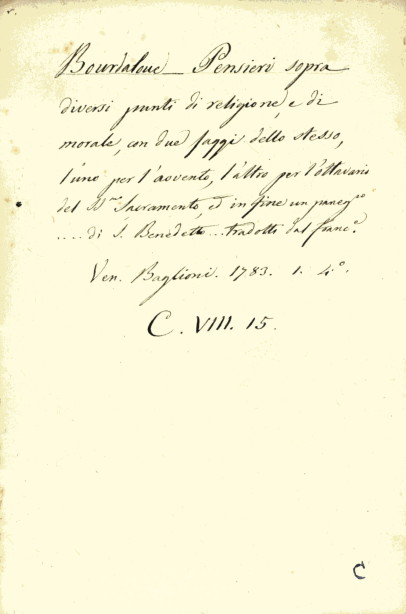 Bourdaloue_ Pensieri sopra
diversi punti di religione, e di
morale, con due saggi dello stesso,
l'uno per l'avvento, l'altro per l'ottavario
del SS.mo Sacramento, ed in fine un paneg.co
.... di S. Benedetto... tradotti dal franc.e
Ven. Baglioni. 1783. 1. 4.o.
C. VIII. 15.
C